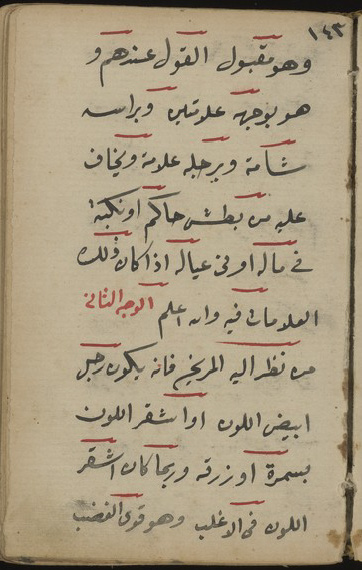 ١٤٣
وهو مقبول القول عندهم و
هو بوجهه علامتين وبراسه
شامة وبرجله علامة ويخاف
عليه من بطش حاكم او نكبة
في ماله او في عياله اذا كان ذلك
العلامات فيه والله اعلم الوجه الثاني
من نظر اليه المريخ فانه يكون رجل
ابيض اللون او اشقر اللون
بسمرة او زرقه وربما كان اشقر
اللون في الاغلب وهو قوي الغضب